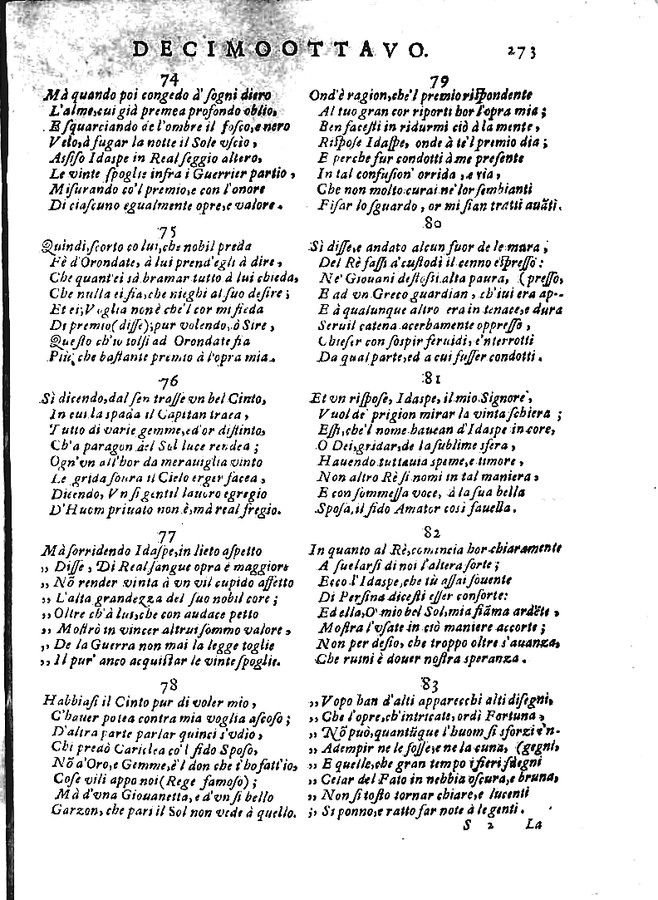 DECIMOOTTAVO. 273
74
Mà quando poi congedo à sogni diero
L'alme, cui già premea profondo oblio,
E squarciando de l'ombre il fosco, e nero
Velo, à fugar la notte il Sole uscio,
Assiso Idaspe in Real seggio altero,
Le vinte spoglie infra i Guerrier partio,
Misurando co'l premio, e con l'onore
Di ciascuno egualmente opre, e valore.
75
Quindi, scorto co lui, che nobil preda
Fè d'Orondate, à lui prend'egli à dire,
Che quant'ei sà bramar tutto à lui chieda,
Che nulla ei sia, che nieghi al suo desire;
Et ei; Voglia non è che'l cor mi fieda
Di premio (disse); pur volendo, ò Sire,
Questo ch'io tolsi ad Orondate sia
Più, che bastante premio à l'opra mia.
76
Sì dicendo, dal sen trasse un bel Cinto,
In cui la spada il Capitan traea,
Tutto di varie gemme, ed'or distinto,
Ch'a paragon del Sol luce rendea;
Ogn'un all'hor da meraviglia vinto
Le grida soura il Cielo erger facea,
Dicendo, Un si gentil lauoro egregio
D'Huom priuato non è, mà real fregio.
77
Mà sorridendo Idaspe, in lieto aspetto
„ Disse, Di Real sangue opra è maggiore
„ Nõ render vinta à un vil cupido affetto
„ L'alta grandezza del suo nobil core;
„ Oltre ch'à lui, che con audace petto
„ Mostrò in vincer altrui sommo valore,
„ De la Guerra non mai la legge toglie
„ Il pur' anco acquistar le vinte spoglie.
78
Habbiasi il Cinto pur di voler mio,
C'hauer potea contra mia voglia ascoso;
D'altra parte parlar quinci s'udio,
Chi predò Cariclea co'l fido Sposo,
Nõ d'Oro, e Gemme, è'l don che i'ho fatt'io,
Cose vili appo noi (Rege famoso);
Mà d'una Giouanetta, e d'un sì bello
Garzon, che pari il Sol non vede à quello.
79
Ond'è ragion, che'l premio rispondente
Al tuo gran cor riporti hor l'opra mia;
Ben facesti in ridurmi ciò à la mente,
Rispose Idaspe, onde à te'l premio dia;
E perche fur condotti à me presente
In tal confusion' orrida, e ria,
Che non molto curai ne' lor sembianti
Fisar lo sguardo, or mi sian tratti auãti.
80
Sì disse, e andato alcun fuor de le mura,
Del Rè fassi a' custodi il cenno espresso:
Ne' Giouani destossi alta paura, (presso,
E ad un Greco guardian, ch'iui era ap-
E à qualunque altro era in tenace, e dura
Seruil catena acerbamente oppresso,
Chieser con sospir feruidi, e'nterrotti
Da qual parte, ed a cui fusser condotti.
81
Et un rispose, Idaspe, il mio Signore,
Vuol de' prigion mirar la vinta schiera;
Essi, che'l nome hauean d'Idaspe in core,
O Dei, gridar, de la sublime sfera,
Hauendo tuttauia speme, e timore,
Non altro Rè si nomi in tal maniera,
E con sommessa voce, à la sua bella
Sposa, il fido Amator così fauella.
82
In quanto al Rè, comincia hor chiaramente
A suelarsi di noi l'altera sorte;
Ecco l'Idaspe, che tù assai souente
Di Persina dicesti esser consorte:
Ed ella, O' mio bel Sol, mia fiãma ardẽte,
Mostra l'usate in ciò maniere accorte;
Non per desio, che troppo oltre s'auanza,
Che ruini è douer nostra speranza.
83
„ Vopo han d'alti apparecchi alti disegni,
„ Che l'opre, ch'intricate, ordì Fortuna,
„ Nõ può, quantũque l'huom si sforzi è'n-
„ Adempir ne le fosse, e ne la cuna, (gegni,
„ E quelle, che gran tempo i fieri sdegni
„ Celar del Fato in nebbia oscura, e bruna,
„ Non sì tosto tornar chiare, e lucenti
„ Si ponno, e ratto far note à le genti.
S 2 La